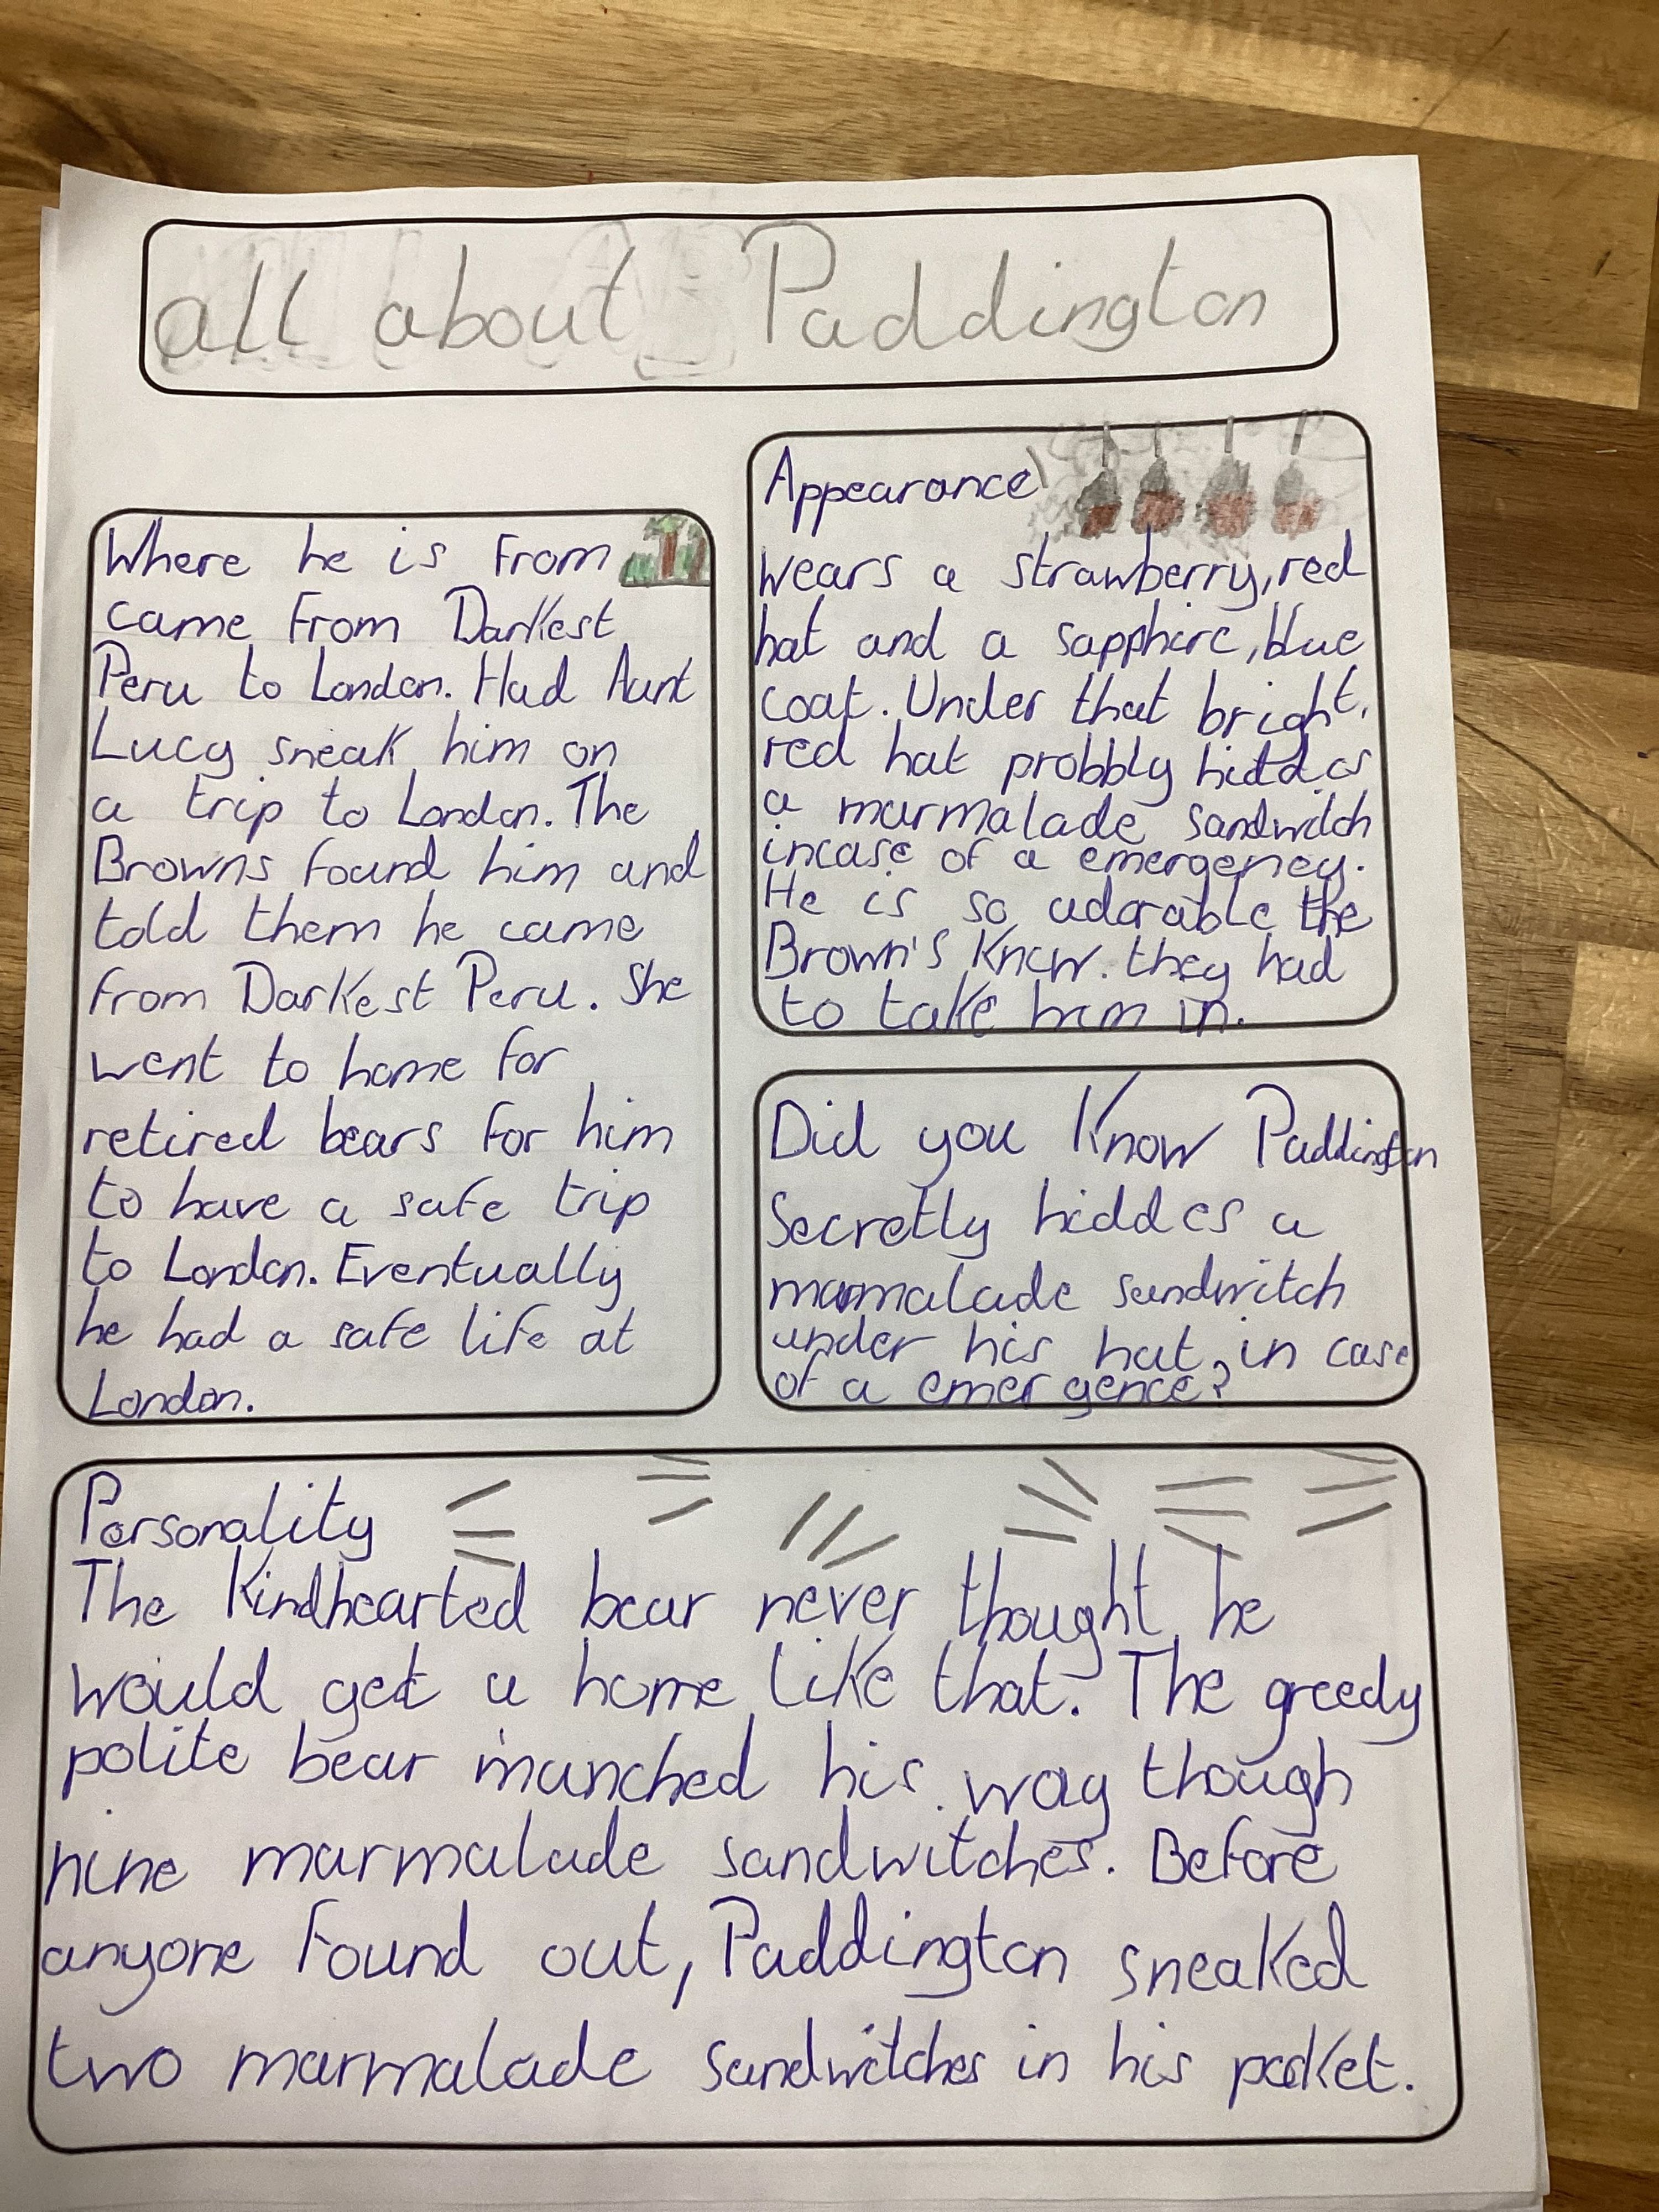 all about Paddington
Where he is from
came from Darkest
Peru to London. Had Aunt
Lucy sneak him on
a trip to London. The
Browns found him and
told them he came
from Darkest Peru. She
went to home for
retired bears for him
to have a safe trip
to London. Eventually
he had a safe life at
London.
Appearance
wears a strawberry, red
hat and a sapphire, blue
coat. Under that bright,
red hat probbly hiddes
a marmalade sandwitch
incase of a emergency.
He is so adorable the
Brown's Knew they had
to take him in.
Did you Know Paddington
Secretly hiddes a
marmalade sandwitch
under his hat, in case
of a emergence?
Personality
The Kindhearted bear never thought he
would get a home like that. The greedy
polite bear munched his way though
nine marmalade sandwitches. Before
anyone found out, Paddington sneaked
two marmalade sandwitches in his pocket.